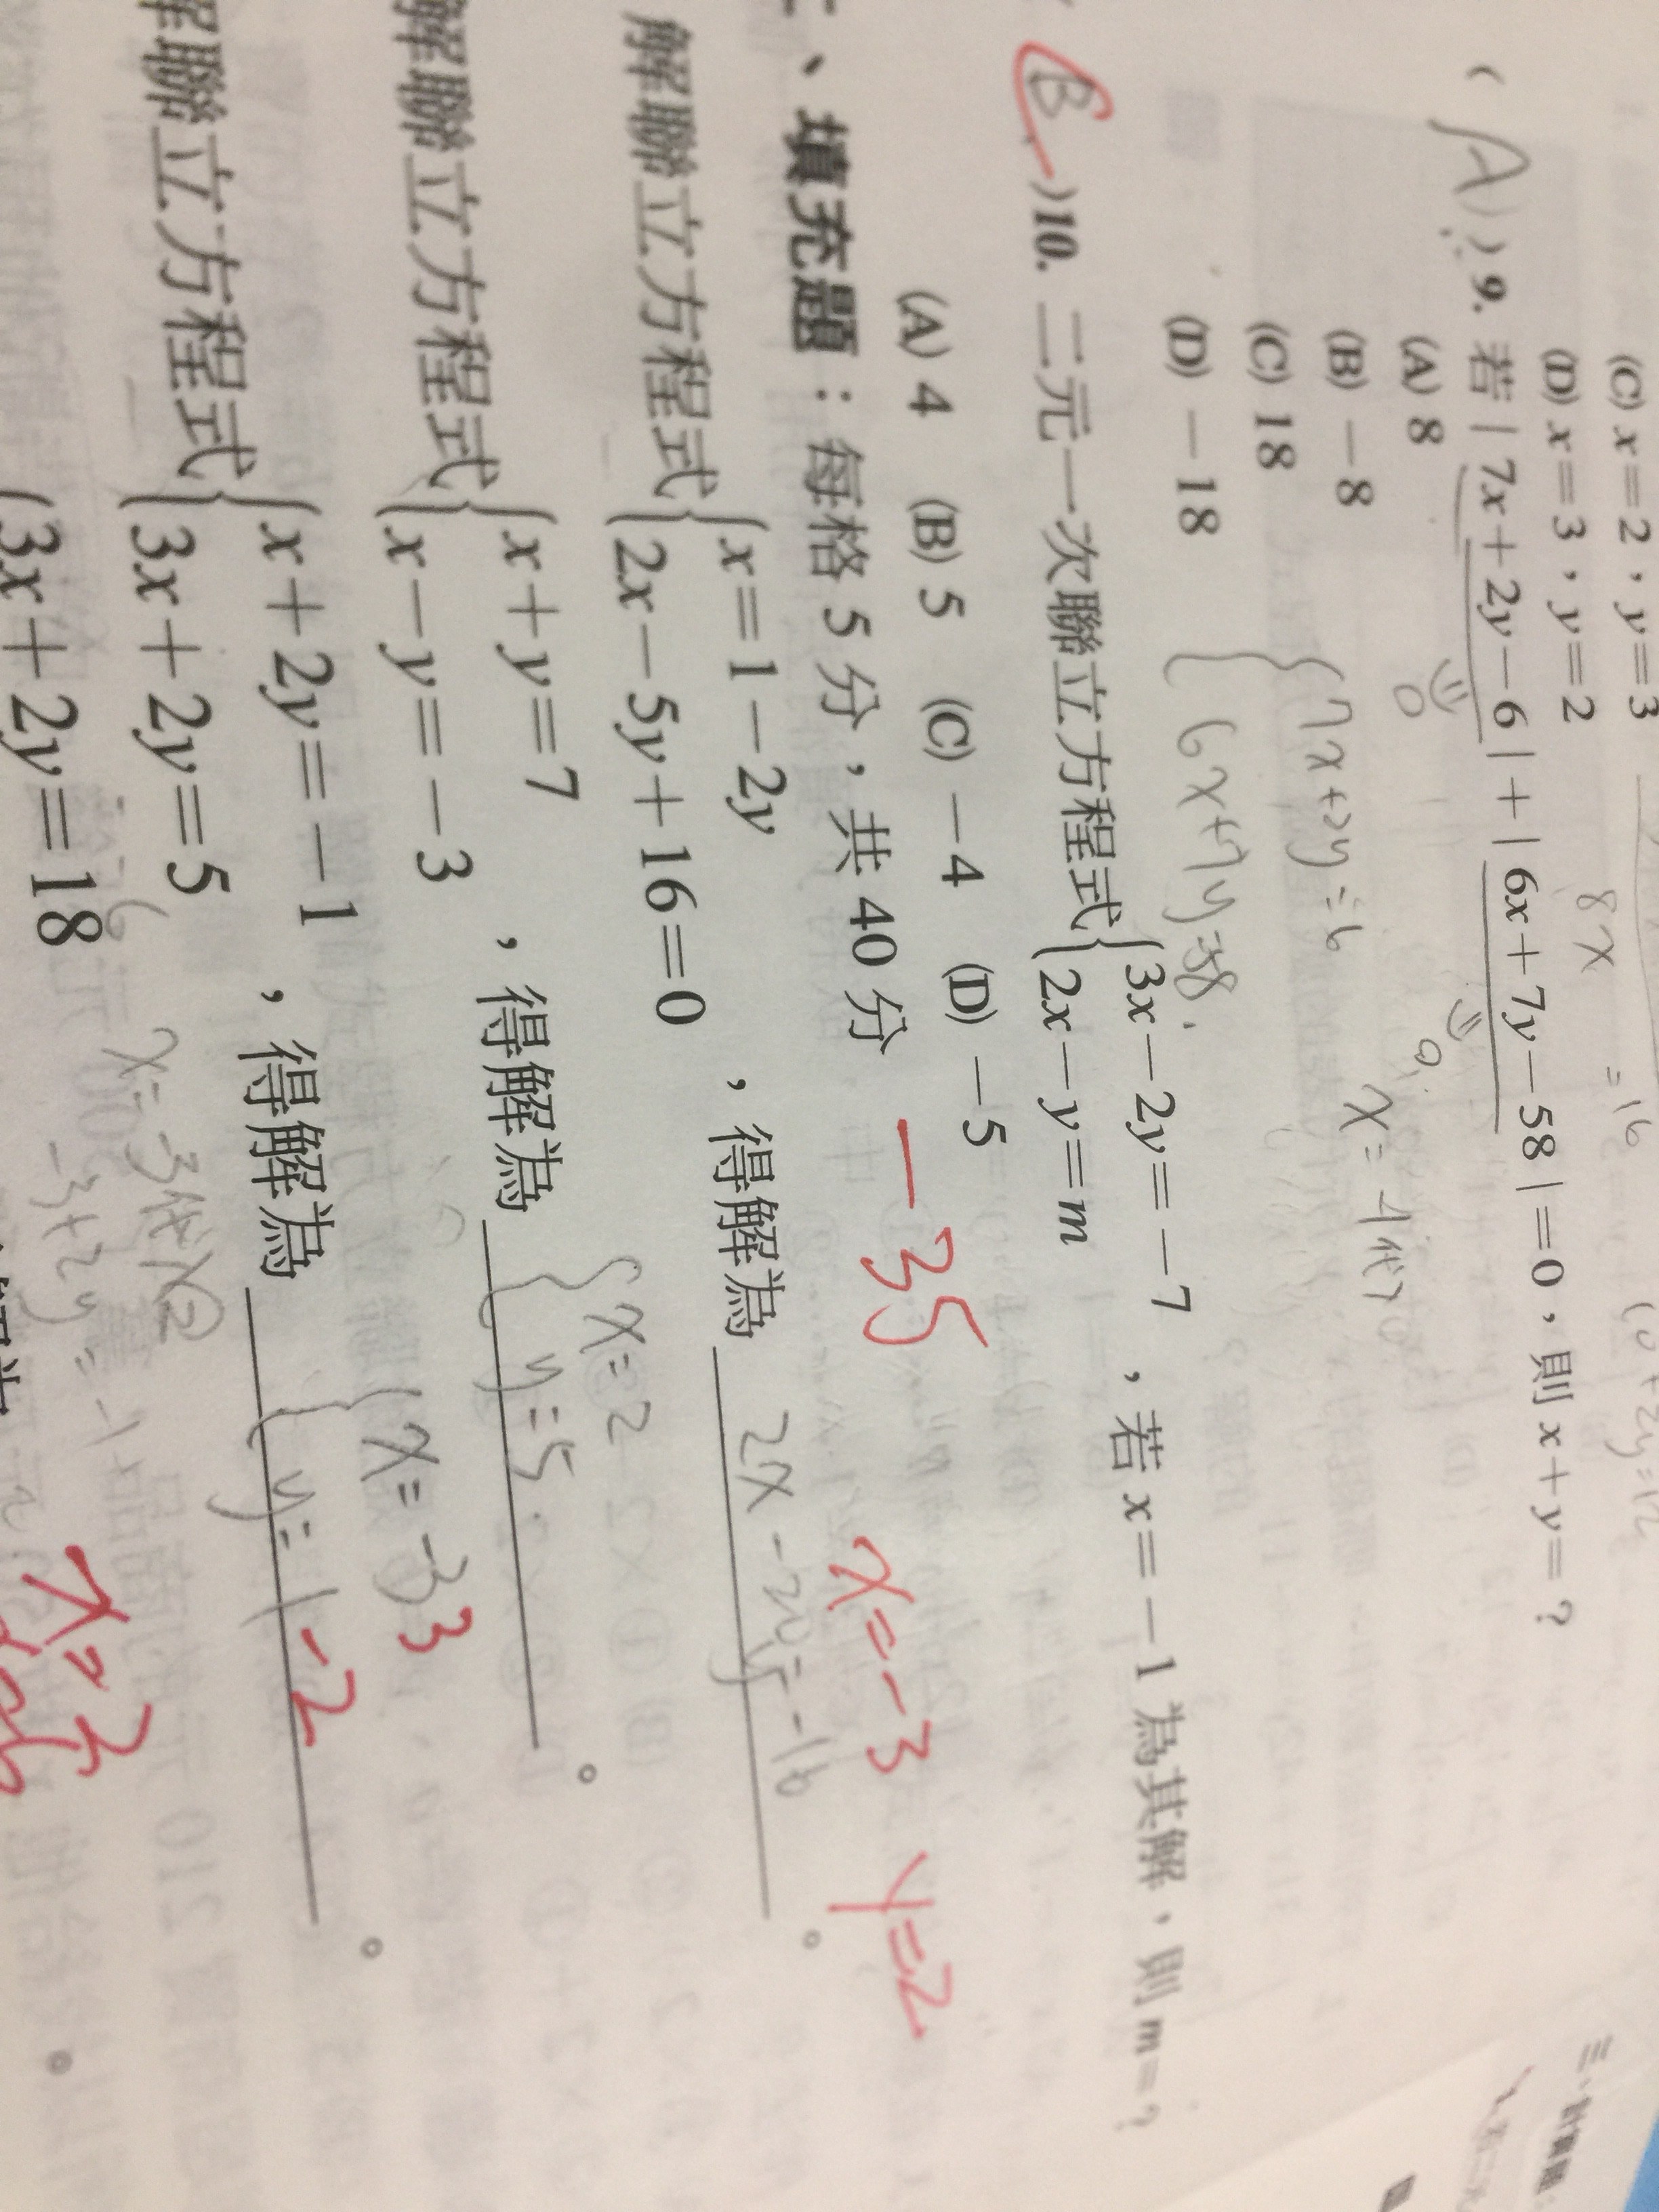 (C) x=2，y=3
(D) x=3，y=2
8x =16
10+2y=12
(A) 9. 若｜7x+2y−6｜+｜6x+7y−58｜=0，則 x+y=？
(A) 8
(B) −8
(C) 18
(D) −18
0
0
{7x+2y=6
{6x+7y=58
x=-4代入
(B) 10. 二元一次聯立方程式{3x−2y=−7
{2x−y=m
，若 x=−1 為其解，則 m=？
(A) 4 (B) 5 (C) −4 (D) −5
、填充題：每格 5 分，共 40 分
-35
x=-3 y=2
解聯立方程式{x=1−2y
{2x−5y+16=0
，得解為 2x -5y=-16 。
解聯立方程式{x+y=7
{x−y=−3
，得解為 {x=2
{y=5 。
解聯立方程式{x+2y=−1
{3x+2y=5
，得解為 {x=-3 3
{y=1 -2 。
x=-3代入②
-3+2y=-1
{3x+2y=18
x=2
。